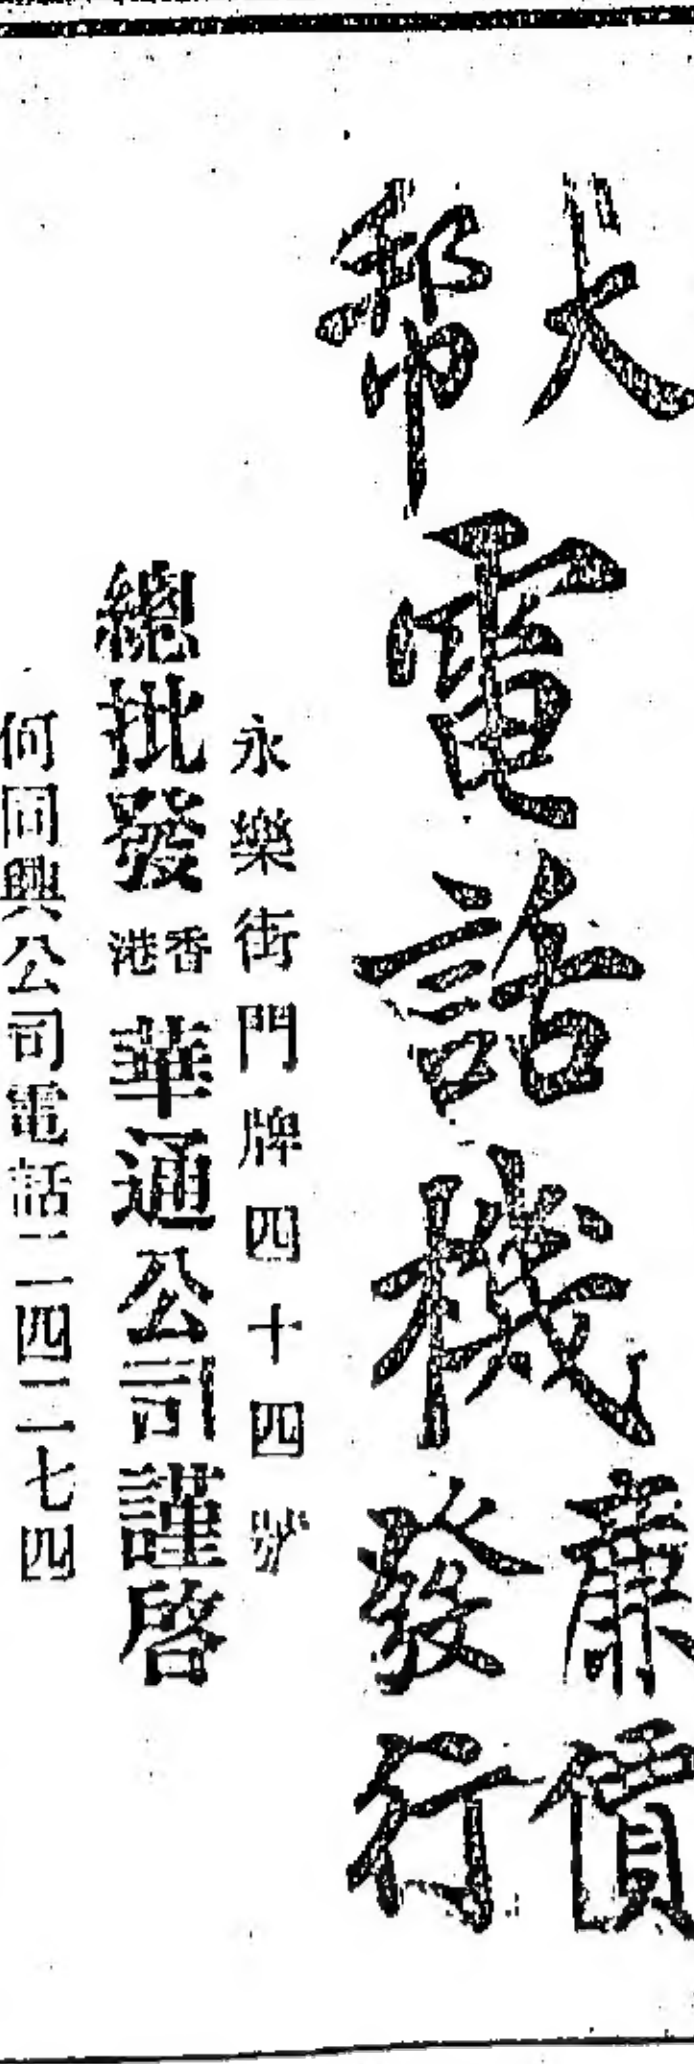 大幫電話機廉價發行
永樂街門牌四十四號
總批發香港華通公司謹啓
何同興公司電話二四二七四